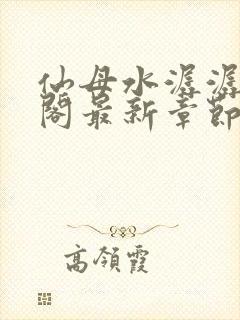 仙母水潺潺
阁最新章节
高领霞